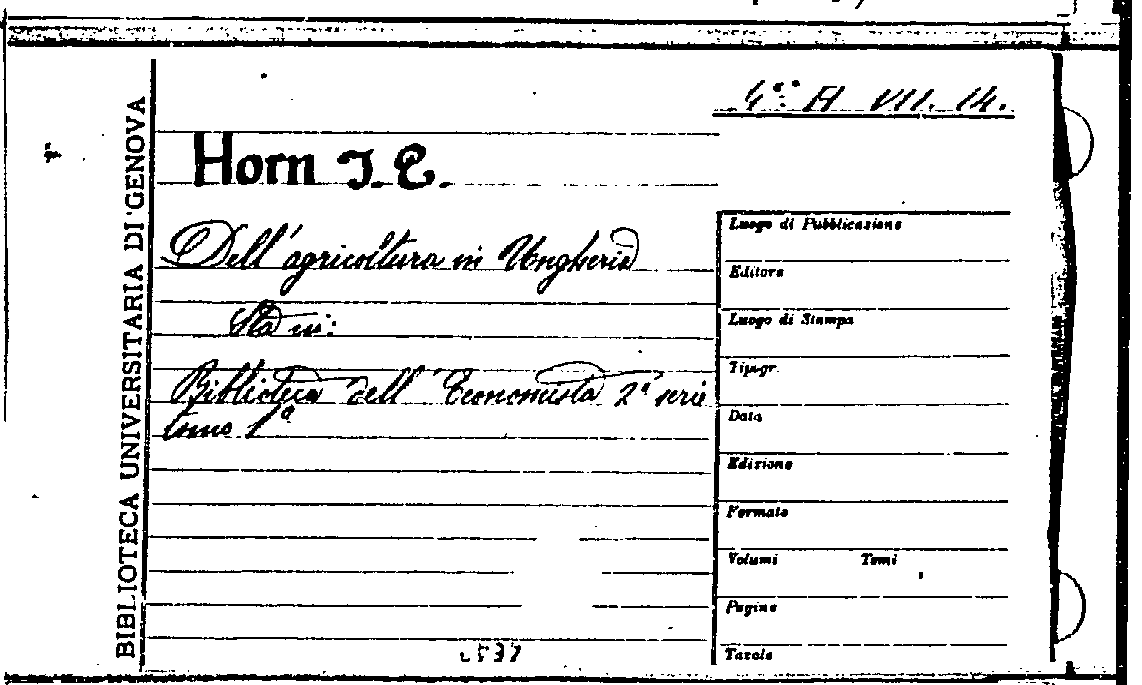 4ª A VII. 14.
BIBLIOTECA UNIVERSITARIA DI GENOVA
Horn J. E.
Dell'agricoltura in Ungheria
Sta in:
Biblioteca dell'Economista 2ª serie
tomo 1º
Luogo di Pubblicazione
Editore
Luogo di Stampa
Tipogr.
Data
Edizione
Formato
Volumi Tomi
Pagine
Tavole